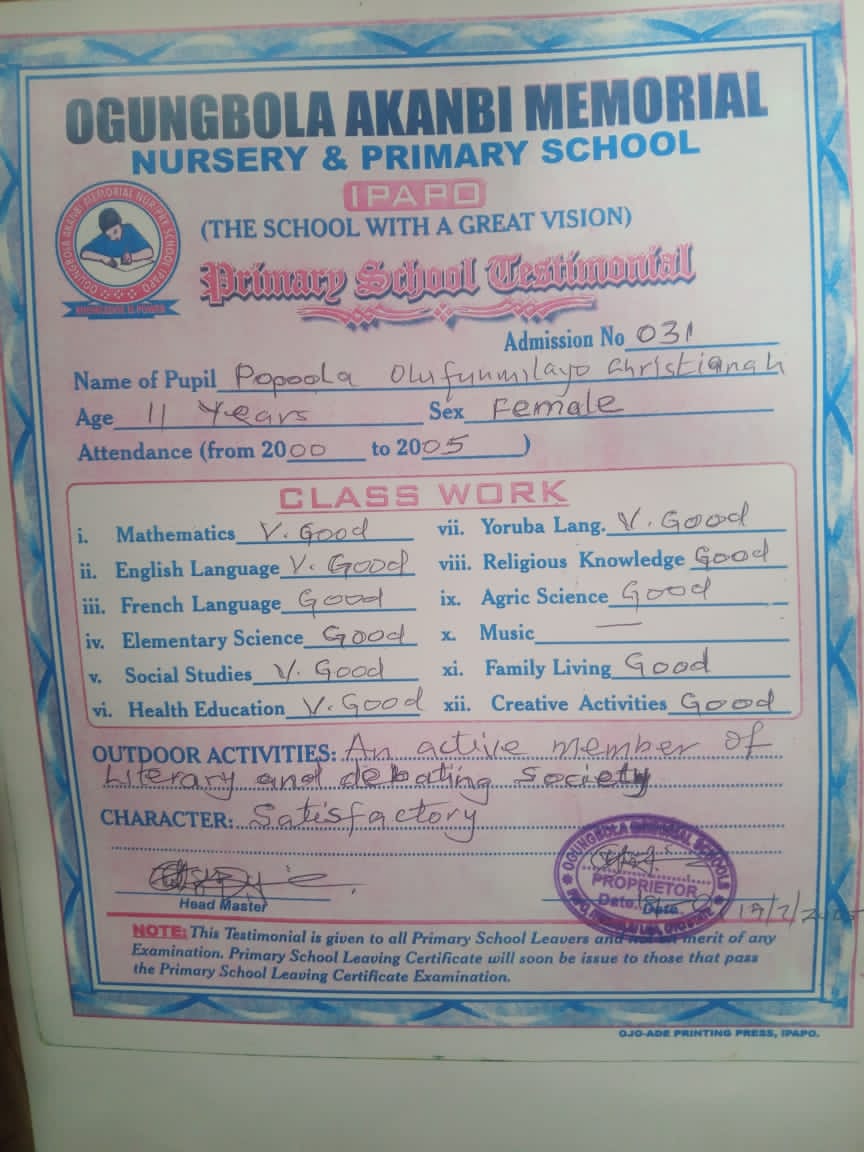 OGUNGBOLA AKANBI MEMORIAL
NURSERY & PRIMARY SCHOOL
IPAPO
(THE SCHOOL WITH A GREAT VISION)
OGUNGBOLA AKANBI MEMORIAL NUR/PRY SCHOOL IPAPO
KNOWLEDGE IS POWER
Primary School Testimonial
Admission No 031
Name of Pupil Popoola Olufunmilayo Christianah
Age 11 Years Sex Female
Attendance (from 2000 to 2005)
CLASS WORK
i. Mathematics V. Good
ii. English Language V. Good
iii. French Language Good
iv. Elementary Science Good
v. Social Studies V. Good
vi. Health Education V. Good
vii. Yoruba Lang. V. Good
viii. Religious Knowledge Good
ix. Agric Science Good
x. Music —
xi. Family Living Good
xii. Creative Activities Good
OUTDOOR ACTIVITIES: An active member of
Literary and debating society
CHARACTER: Satisfactory
Head Master
OGUNGBOLA MEMORIAL SCHOOLS
PROPRIETOR
Date.
OYO STATE
19/7/2005
NOTE: This Testimonial is given to all Primary School Leavers and not on merit of any
Examination. Primary School Leaving Certificate will soon be issue to those that pass
the Primary School Leaving Certificate Examination.
OJO-ADE PRINTING PRESS, IPAPO.